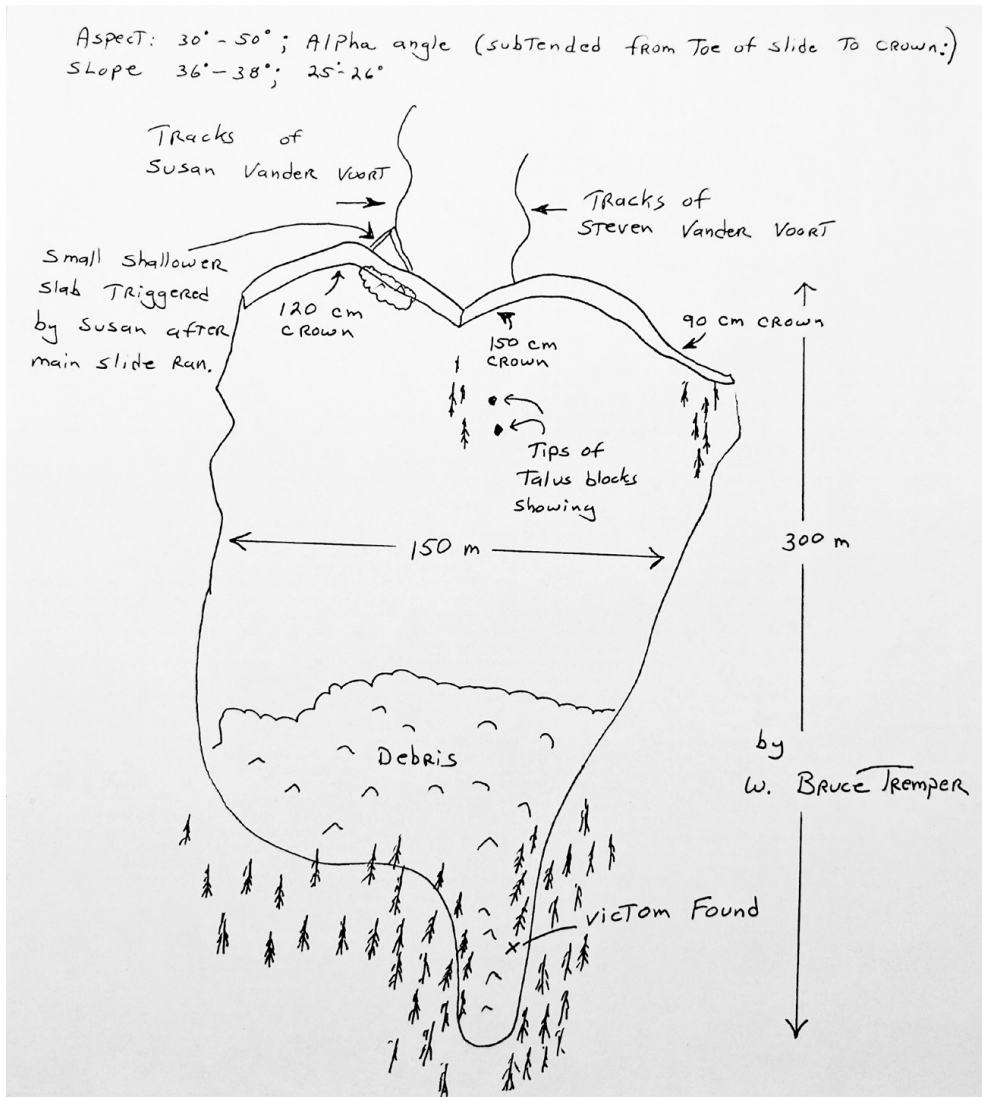 Aspect: 30° - 50° ; Alpha angle (subtended from Toe of slide To crown:)
Slope 36° - 38°; 25°-26°
Tracks of
Susan Vander Voort
Tracks of
Steven Vander Voort
Small shallower
slab Triggered
by Susan after
main slide Ran.
120 cm
crown
150 cm
crown
90 cm crown
Tips of
Talus blocks
showing
150 m
300 m
Debris
by
W. Bruce Tremper
Victom Found